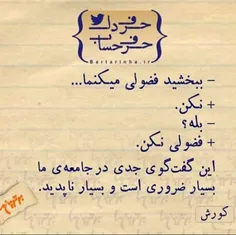 حرف دل
حرف حساب
Bartarinha.ir
- ببخشید فضولی میکنما...
+ نکن.
- بله؟
+ فضولی نکن.
این گفت‌گوی جدی در جامعه‌ی ما
بسیار ضروری است و بسیار ناپدید.
کورش